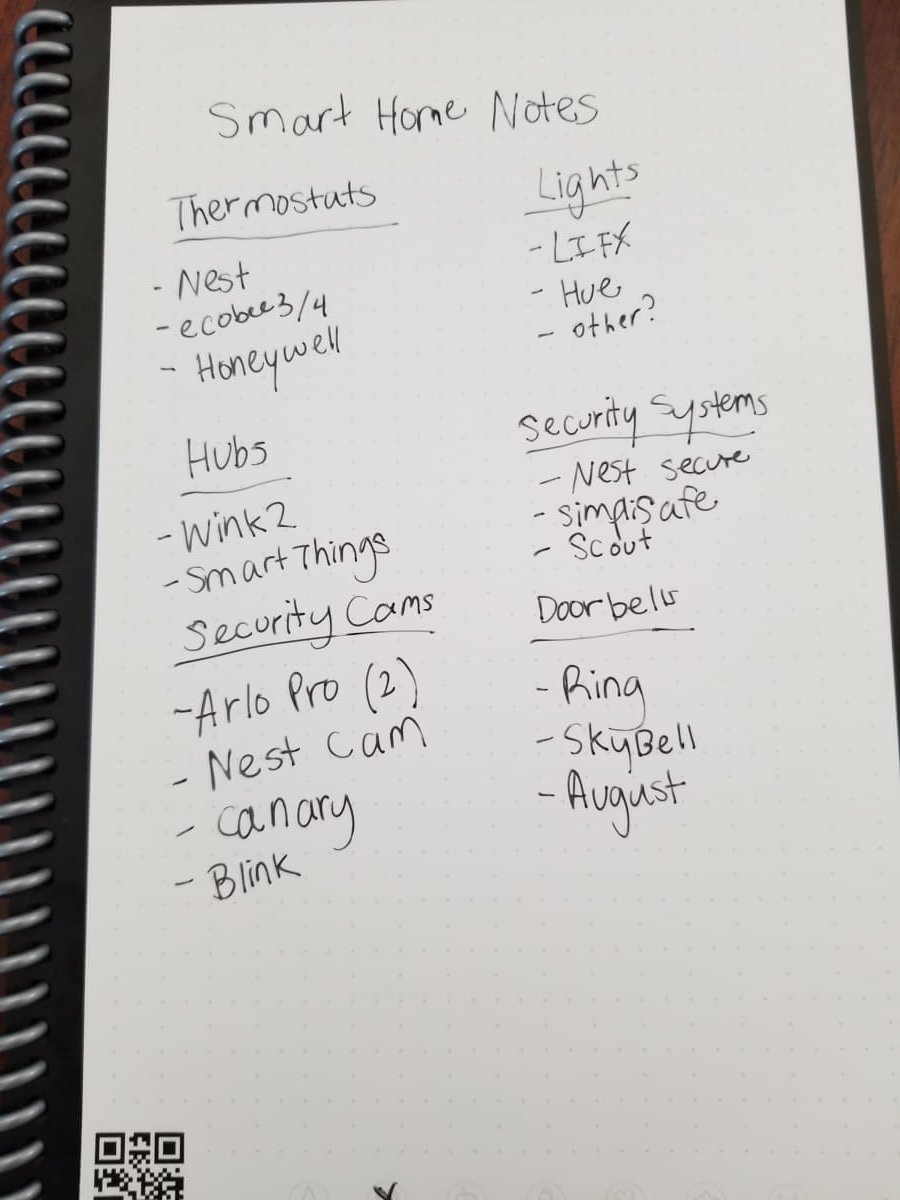 Smart Home Notes
Thermostats
- Nest
- ecobee3/4
- Honeywell
Lights
- LIFX
- Hue
- other?
Hubs
- Wink2
- SmartThings
Security Systems
- Nest secure
- simpliSafe
- Scout
Security Cams
- Arlo Pro (2)
- Nest Cam
- Canary
- Blink
Doorbells
- Ring
- SkyBell
- August